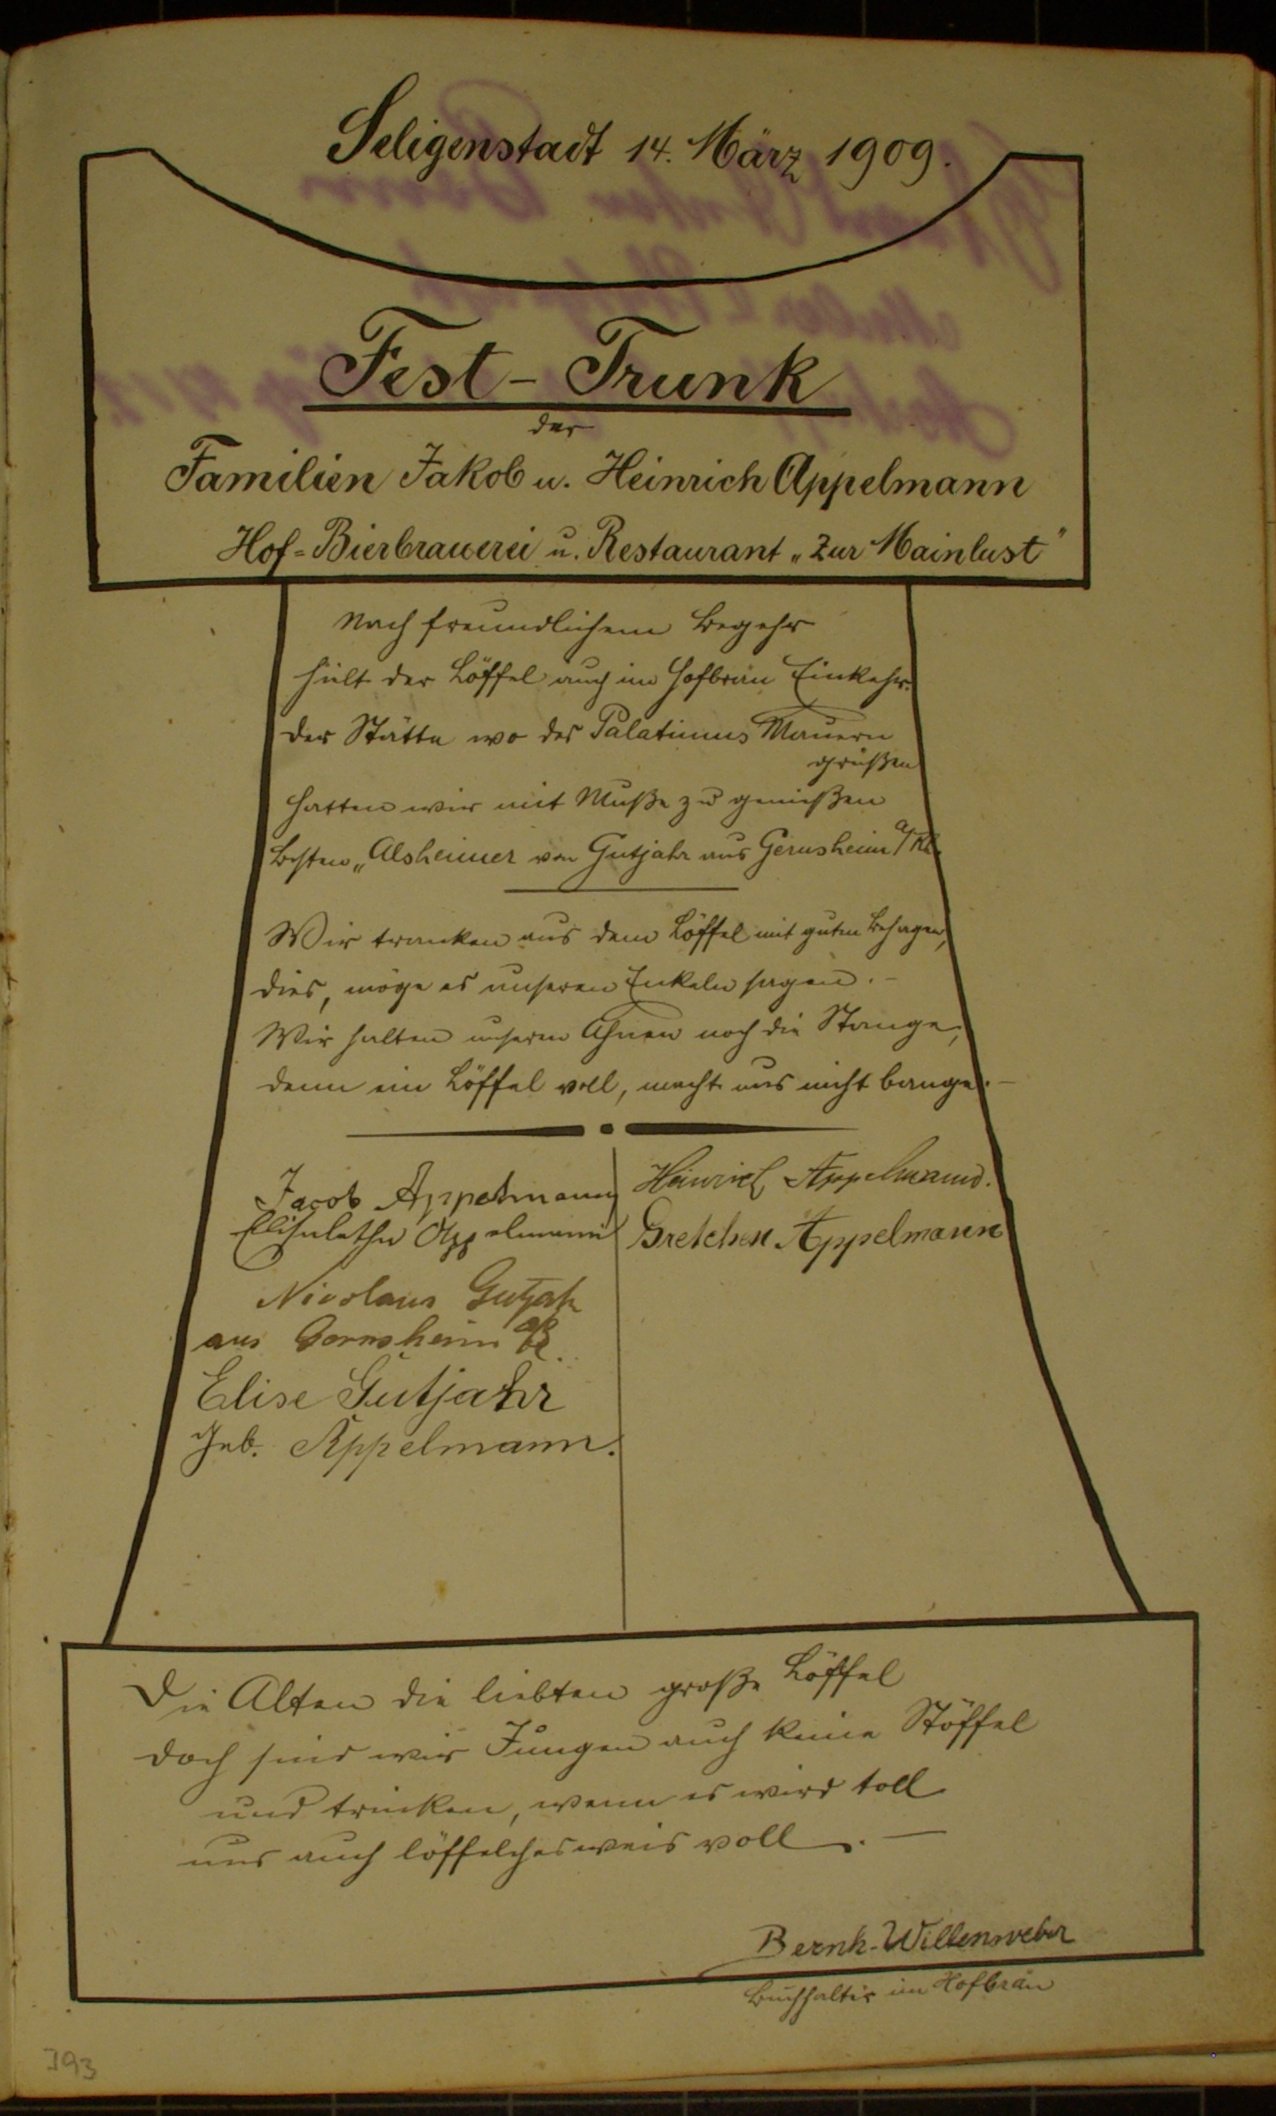 Seligenstadt 14. März 1909.
Fest-Trunk
der
Familien Jakob u. Heinrich Appelmann
Hof-Bierbrauerei u. Restaurant „Zur Mainlust"
Nach freundlichem Begehr
hielt der Löffel auch im Hofbräu Einkehr.
Der Stätte wo des Palatiums Mauern
grüßen
hatten wir mit Muße zu genießen
besten „Alsheimer von Gutjahr aus Gernsheim a/Rh.
Wir tranken aus dem Löffel mit gutem Behagen,
dies, möge es unseren Enkeln sagen. –
Wir halten unsern Ahnen noch die Stange,
denn ein Löffel voll, macht uns nicht bange. –
Jacob Appelmann
Elisabetha Appelmann
Nicolaus Gutjahr
aus Gernsheim a/R.
Elise Gutjahr
Geb. Appelmann.
Heinrich Appelmann.
Gretchen Appelmann
Die Alten die liebten große Löffel
doch sind wir Jungen auch keine Stöffel
und trinken, wenn es wird toll
uns auch löffelchesweis voll. –
Bernh. Willenweber
Buchhalter im Hofbräu
393